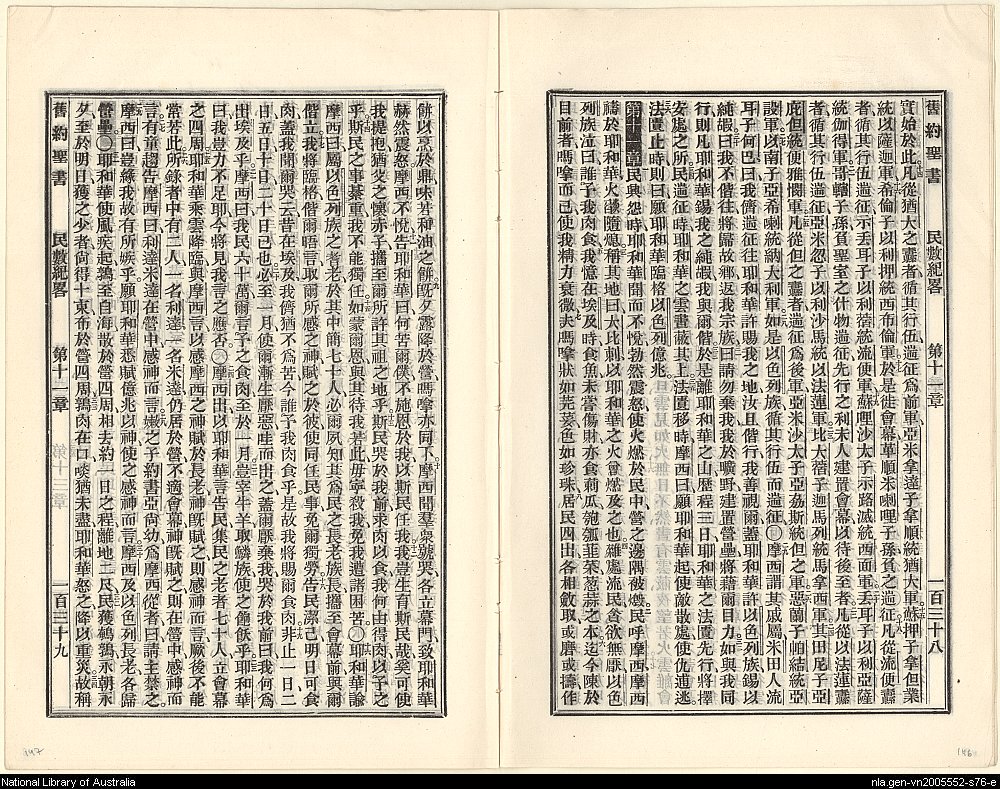 舊約聖書 民數紀畧 第十一章 一百三十八
實始於此凡從猶大之纛者循其行伍遄征為前軍亞米拿達子拿順統猶大軍蘇押子拿但業
統以薩迦軍希倫子以利押統西布倫軍於是徙會幕革順米喇哩子孫負之遄征凡從流便纛
者循其行伍遄征示丟耳子以利統流便軍蘇哩沙太子示路滅統西面軍丟耳子以利亞薩
統伽得軍哥轄子孫負聖室之什物遄征先行之利未人建置會幕以待後至者凡從以法蓮纛
者循其行伍遄征亞米忽子以利沙馬統以法蓮軍比大子迦馬列統馬拿西軍其田尼子亞
庇但統便雅憫軍凡從但之纛者遄征為後軍亞米沙太子亞斯統但之軍惡蘭子帕結統亞
設軍以南子亞希喇統納大利軍如是以色列族循其行伍而遄征○摩西謂其戚屬米田人流
耳子何巴曰我儕遄征至耶和華許賜我之地汝且偕行我善視爾蓋耶和華許以色列族錫以
純嘏曰我不偕往將歸故鄉返我宗族曰請勿棄我我於曠野建置營壘將藉爾目力如與我同
行則凡耶和華錫我之純嘏我與爾偕於是離耶和華之山歷程三日耶和華之法匱先行將擇
安處之所民遄征時耶和華之雲晝蔽其上法匱移時摩西曰願耶和華起使敵散處使仇遁逃
法匱止時則曰願耶和華臨格以色列億兆
第十一章民興怨時耶和華聞而不悅勃然震怒使火燃於民中營之邊隅被燬民呼摩西摩西
禱於耶和華火遂熄稱其地曰大比喇以耶和華使火曾燃及之也雜處流民貪欲無厭以色
列族泣曰誰予我肉食我憶在埃及時食魚未嘗傷財亦食瓜匏瓠韮葱蒜之本迄今陳於
目前者嗎嗱而已使我精力衰微夫嗎嗱狀如芫荽色如珍珠居民四出各相斂取或磨或擣作
餅以烹於鼎味若和油之餅旣夕露降於營嗎嗱亦同下摩西聞羣衆號哭各立幕門致耶和華
赫然震怒摩西不悅告耶和華曰何苦爾僕不施恩於我以斯民任我我豈生育斯民哉奚可使
我提抱猶父之懷赤子攜至爾所許其祖之地乎斯民哭於我前求肉以食我何由得肉以予之
乎斯民之事綦重我不能獨任如蒙爾恩與其待我若此毋寧殺我免我遭諸困苦○耶和華諭
摩西曰屬以色列族之耆老於其中簡七十人必爾夙知其為民之長老族長攜至會幕前與爾
偕立我將臨格偕爾晤言取爾所感之神賦之於彼使同任民事免爾獨勞告民潔己明日可食
肉蓋我聞爾哭云昔在埃及我儕猶不為苦今誰予我肉食乎是故我將賜爾食肉非止一日二
日五日十日二十日已也必至一月使爾漸生厭惡哇而出之蓋爾厭棄我哭於我前曰我何為
出埃及乎摩西曰我民六十萬爾言予之食肉至於一月豈宰牛羊取鱗族使之饜飫乎耶和華
曰我豈力不足耶今將見我言之應否○摩西出以耶和華言告民集民之老者七十人立會幕
之四周耶和華乘雲降臨與摩西言以感摩西之神賦於長老神旣賦之則感神而言厥後不能
常若此所錄者中有二人一名利達一名米達仍居於營不適會幕神旣賦之則在營中感神而
言有童趨告摩西曰利達米達在營中感神而言嫩之子約書亞尚幼為摩西從者曰請主禁之
摩西曰豈緣我故有所嫉乎願耶和華悉賦億兆以神使之感神而言摩西及以色列長老各歸
營壘○耶和華使風疾起鶉至自海散於營四周相去約一日之程離地二尺民獲鵪鶉永朝永
夕至於明日獲之少者尚得十東布於營四周鶉肉在口啖猶未盡耶和華怒之降以重災故稱
舊約聖書 民數紀畧 第十一章 一百三十九
147
146
National Library of Australia
nla.gen-vn2005552-s76-e